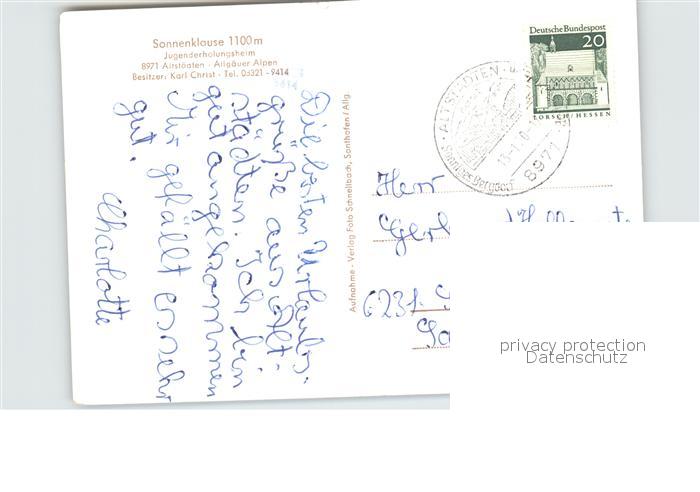 Sonnenklause 1100m
Jugenderholungsheim
8971 Altstädten - Allgäuer Alpen
Besitzer: Karl Christ - Tel. 05321 - 9414
Die besten Urlaubs-
grüße aus Alt-
städten. Ich bin
gut angekommen
Mir gefällt es sehr
gut.
Charlotte
Aufnahme - Verlag Foto Schnellbach, Sonthofen / Allg.
Deutsche Bundespost
20
LORSCH / HESSEN
8971
Herr
6231
privacy protection
Datenschutz